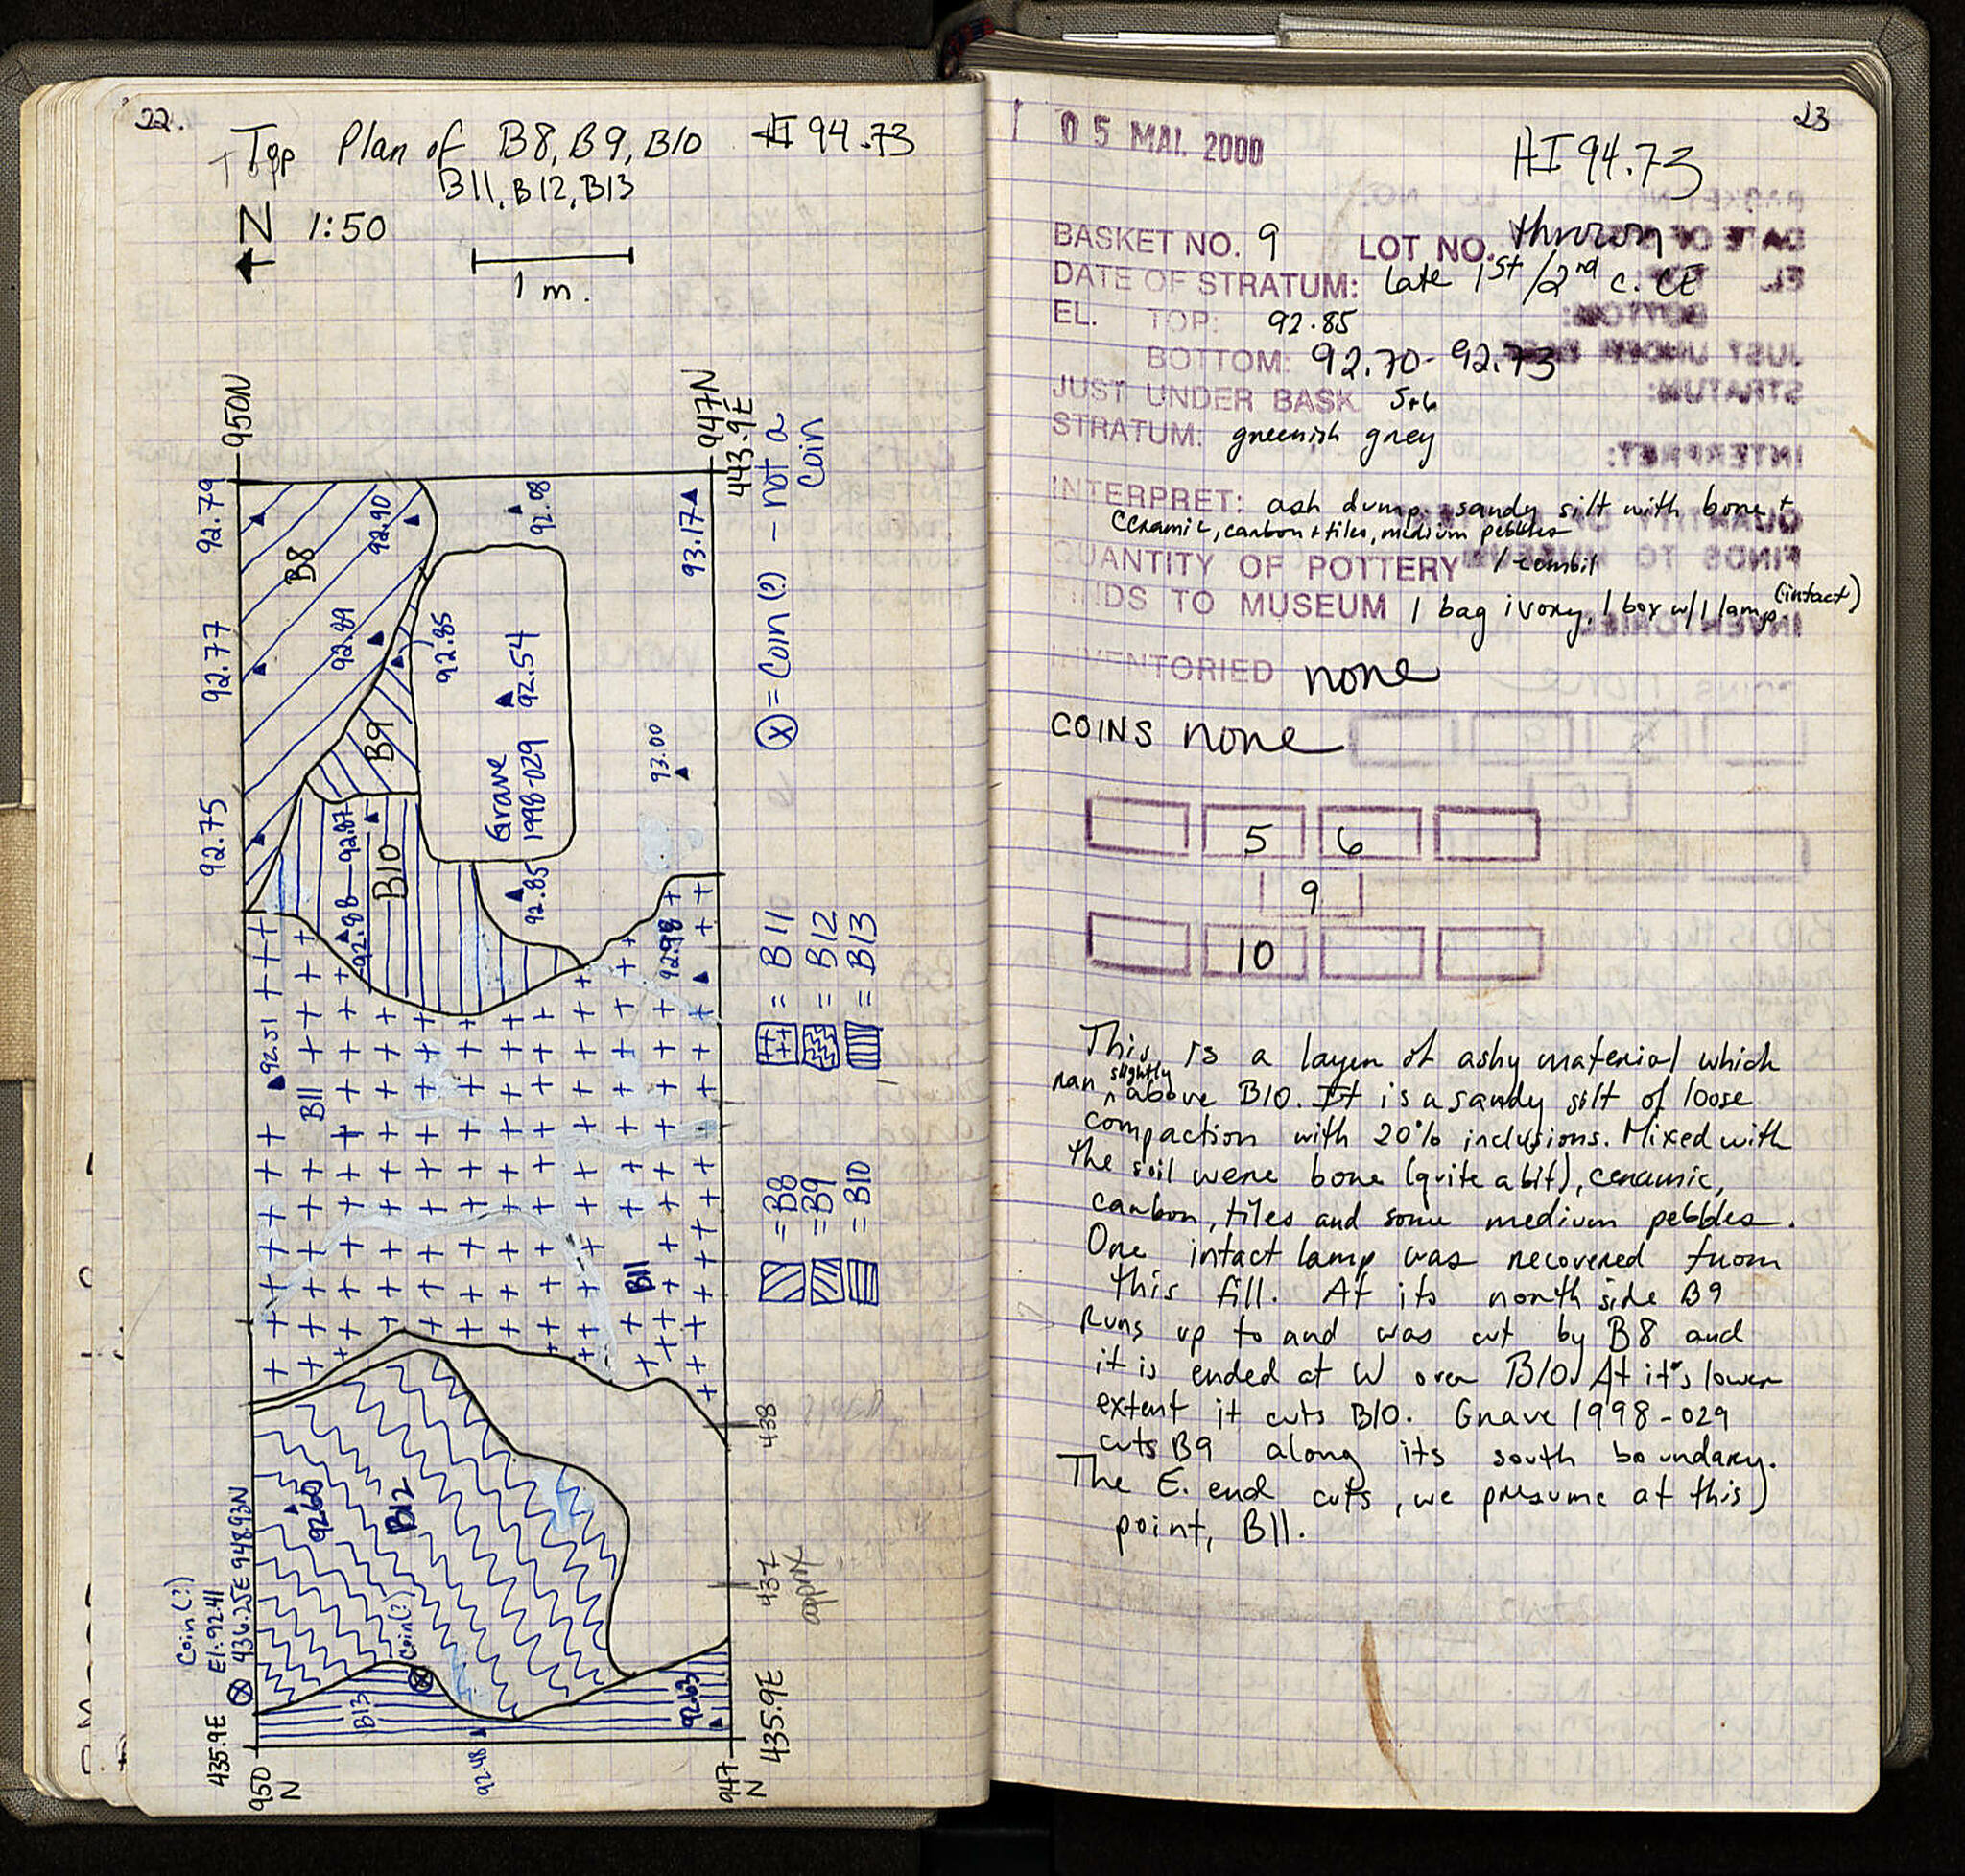 22.
Top Plan of B8, B9, B10 HI 94.73
B11, B12, B13
N 1:50
1 m.
950N
947N
443.9E
92.79
92.77
92.75
B8
92.90
92.89
92.98
93.17
92.85
B9
Grave
1998-029
92.54
93.00
92.87
92.88
B10
92.85
92.98
92.51
B11
B11
ⓧ = Coin (?) - not a
coin
= B11
= B12
= B13
= B8
= B9
= B10
438
437
approx
92.60
B12
Coin (?)
El: 92.41
ⓧ 436.25E 948.93N
Coin (?)
B13
92.63
92.48
435.9E
950
N
947
N
435.9E
23
05 MAI 2000
HI 94.73
BASKET NO. 9 LOT NO. thrown
DATE OF STRATUM: late 1st/2nd c. CE
EL. TOP: 92.85
BOTTOM: 92.70-92.73
JUST UNDER BASK 5+6
STRATUM: greenish grey
INTERPRET: ash dump. sandy silt with bone +
ceramic, carbon + tiles, medium pebbles
QUANTITY OF POTTERY 1 zembil
FINDS TO MUSEUM 1 bag ivory, 1 box w/1 lamp (intact)
INVENTORIED none
COINS none
5 6
9
10
This is a layer of ashy material which
ran slightly above B10. It is a sandy silt of loose
compaction with 20% inclusions. Mixed with
the soil were bone (quite a bit), ceramic,
carbon, tiles and some medium pebbles.
One intact lamp was recovered from
this fill. At its north side B9
Runs up to and was cut by B8 and
it is ended at W over B10. At it's lower
extent it cuts B10. Grave 1998-029
cuts B9 along its south boundary.
The E. end cuts, we presume at this
point, B11.